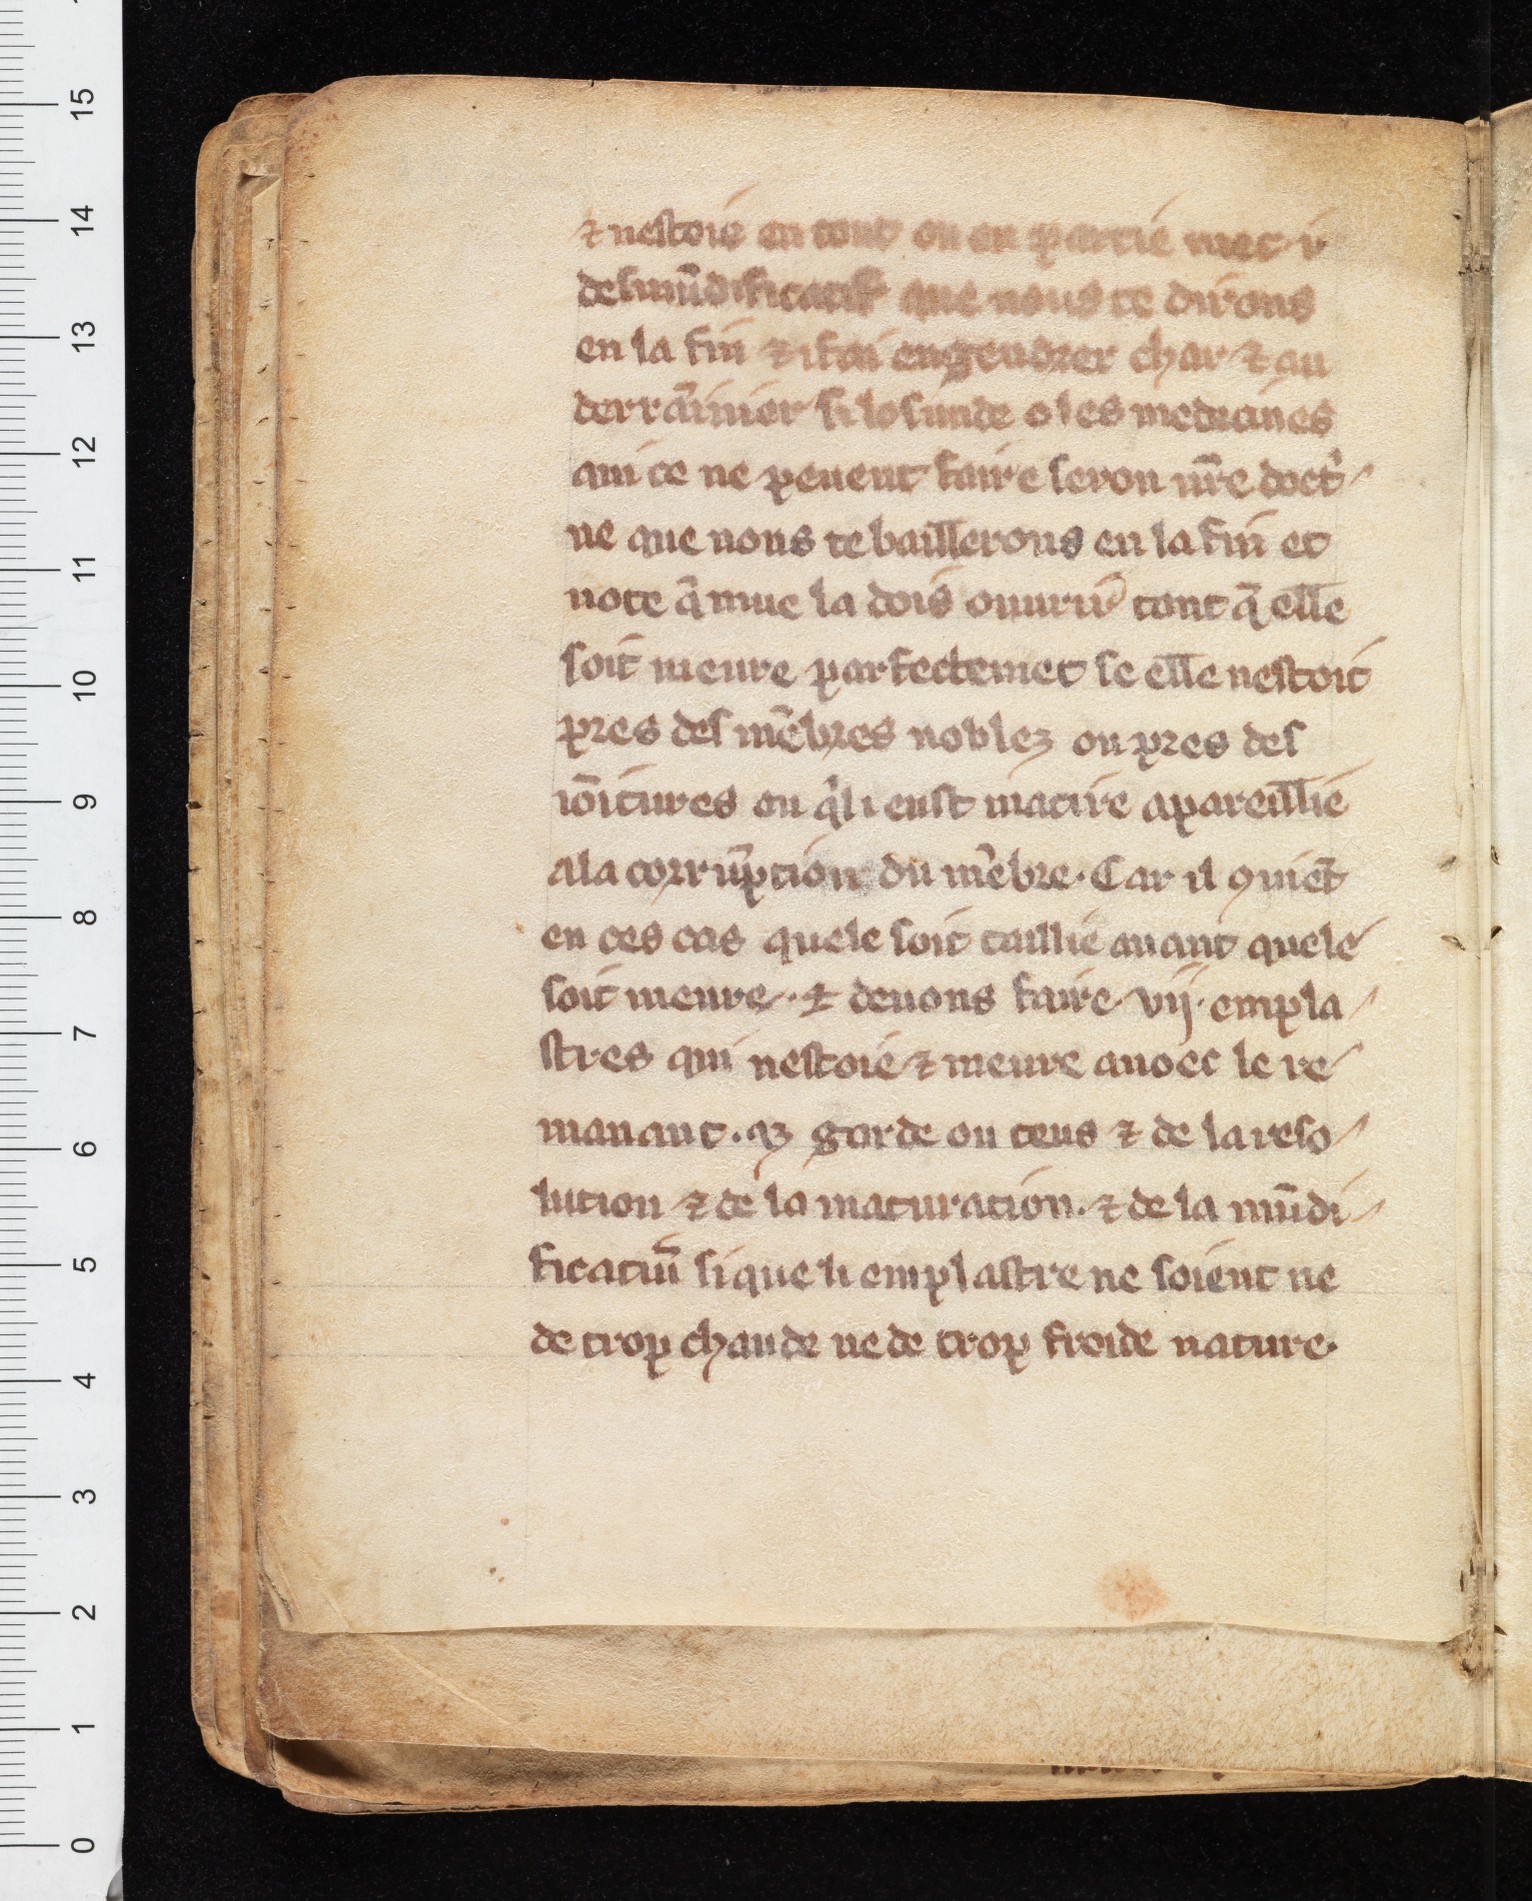 ⁊ nestoie en tout ou en partie met i
des mūdificatif que nous te dirons
en la fin ⁊ i fai engendrer char ⁊ au
derrāinier si lo sunde o les medcines
qui ce ne peuent faire selon nr̄e doctⁱ
ne que nous te baillerons en la fin et
note q̄ mue la dois ouurir tant q̄ elle
soit meure parfectemet se elle nestoit
pres des mēbres noblez ou pres des
iōitures ou qⁱl i eust matire apareillie
a la corrūption du mēbre. Car il ꝯuiēt
en ces cas quele soit taillie auant quele
soit meure. ⁊ deuons faire vij. empla
stres qui nestoie ⁊ meure auoec le re
manant. ꝗꝫ garde ou tens ⁊ de la reso
lution ⁊ de la maturation. ⁊ de la mūdi
ficatiuī si que li emplastre ne soient ne
de trop chaude ne de trop froide nature.